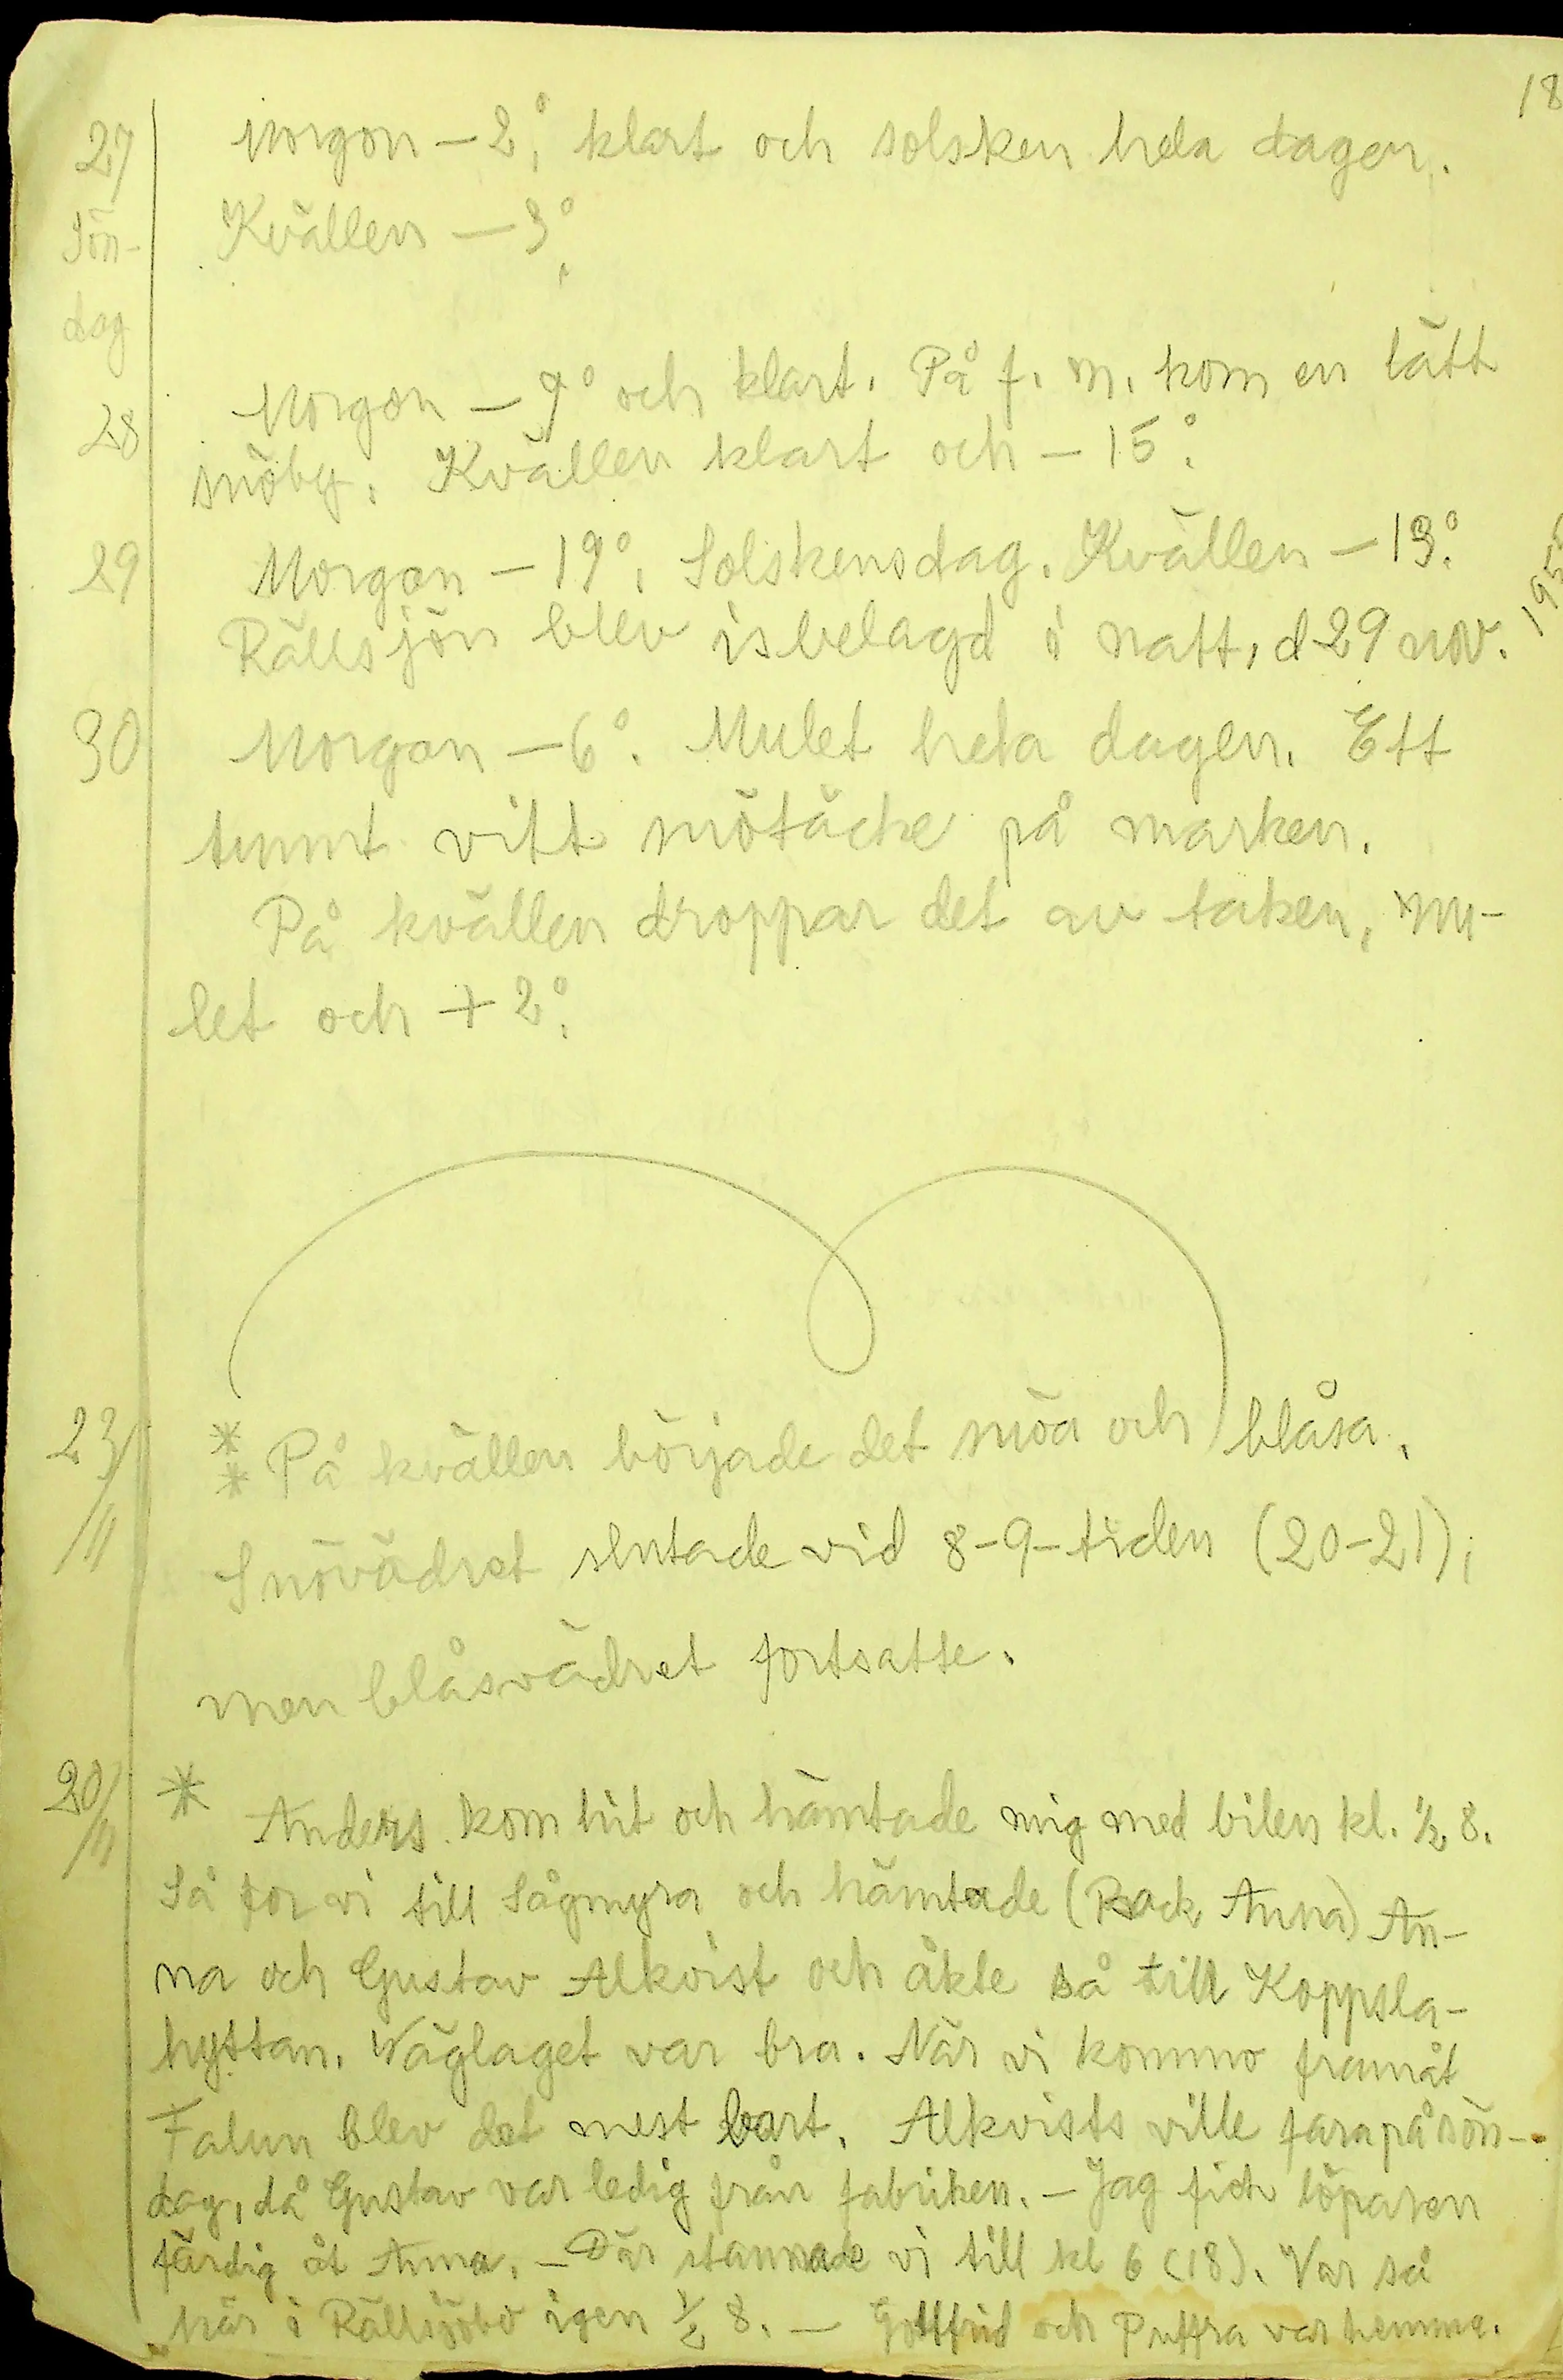 18
27 Morgon – 2°, klart och solsken hela dagen.
Sön- Kvällen – 3°.
dag
28 Morgon – 9° och klart. På f. m. kom en lätt
snöby. Kvällen klart och – 15°.
29 Morgon – 19°. Solskensdag. Kvällen – 13°.
Rällsjön blev isbelagd i natt, d 29 nov. 195
30 Morgon – 6°. Mulet hela dagen. Ett
tunnt vitt snötäcke på marken.
På kvällen droppar det av taken, mu-
let och + 2°.
23/11 ** På kvällen började det snöa och blåsa.
Snövädret slutade vid 8-9-tiden (20-21);
men blåsvädret fortsatte.
20/11 * Anders kom hit och hämtade mig med bilen kl. ½ 8.
Så for vi till Sågmyra och hämtade (Back Anna) An-
na och Gustav Alkvist och åkte så till Koppsla-
hyttan. Väglaget var bra. När vi kommo framåt
Falun blev det mest bart. Alkvists ville fara på sön-
dag, då Gustav var ledig från fabriken. – Jag fick löparen
färdig åt Anna. – Där stannade vi till kl 6 (18). Var så
här i Rällsjöbo igen ½ 8. – Gottfrid och Puffra var hemma.